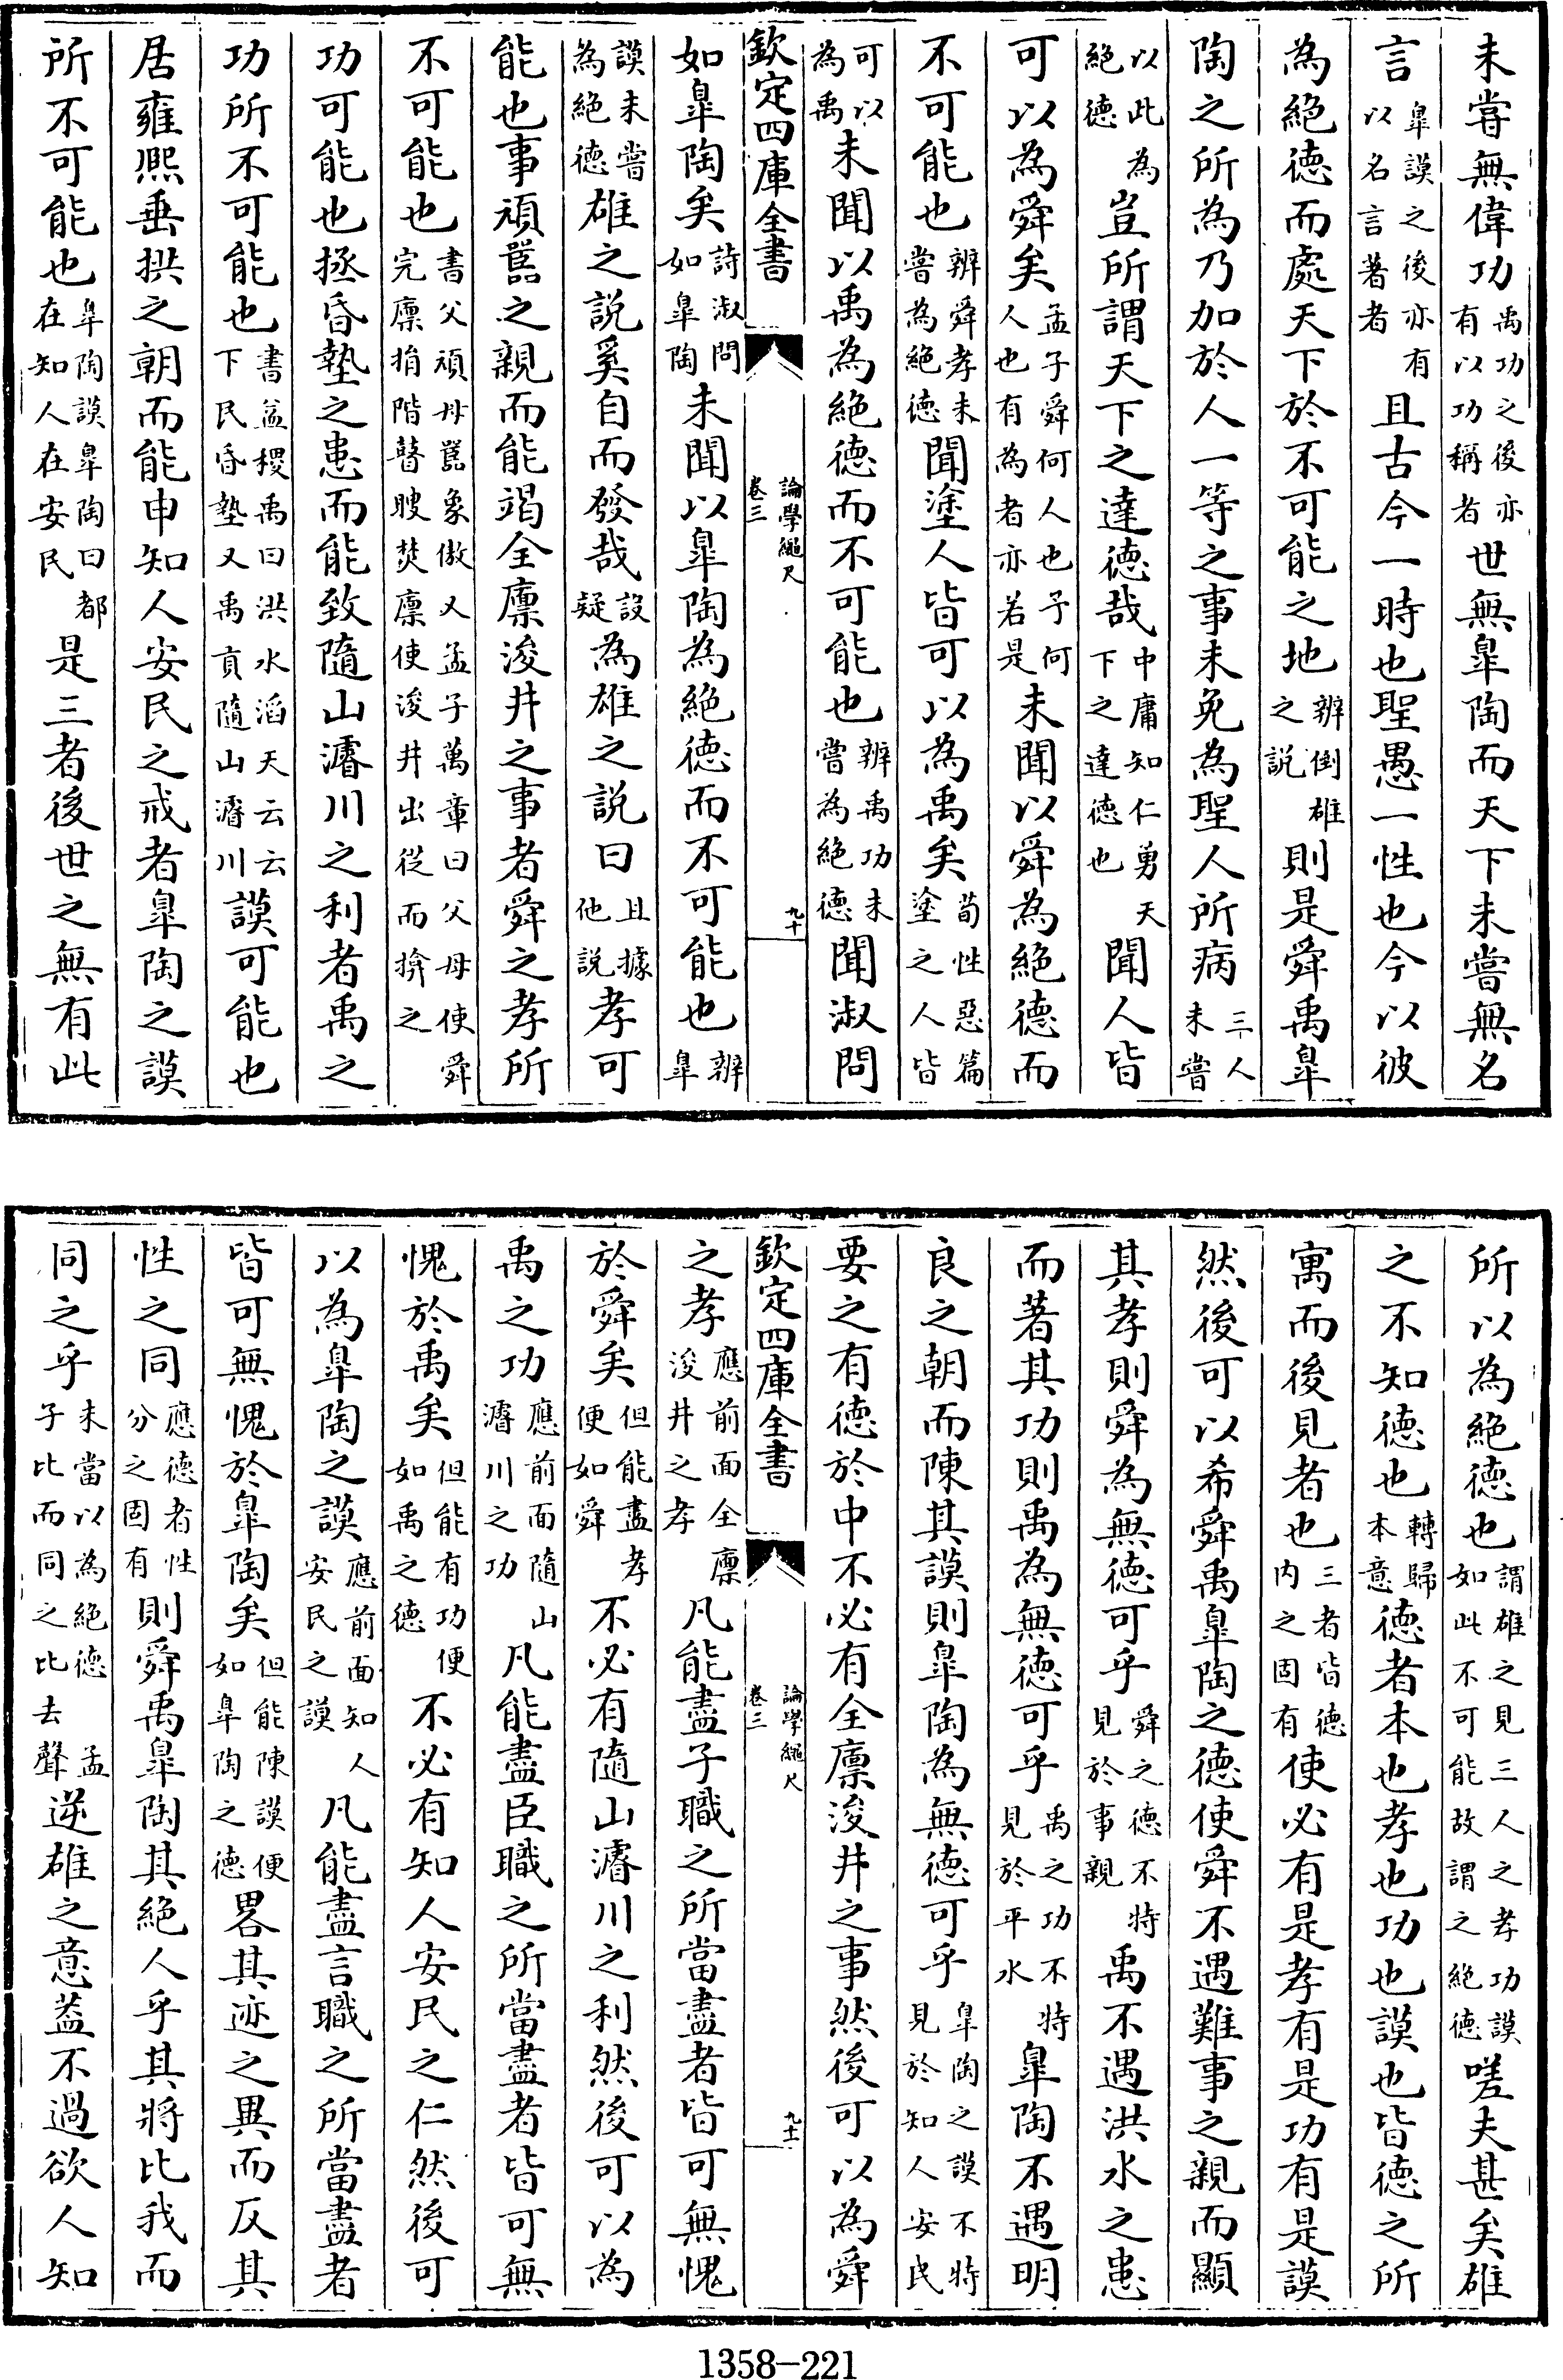 未嘗無偉功禹功之後亦有以功稱者世無臯陶而天下未嘗無名
言臯謨之後亦有以名言著者且古今一時也聖愚一性也今以彼
為絕德而處天下於不可能之地辨倒雄之說則是舜禹臯
陶之所為乃加於人一等之事未免為聖人所病三人未嘗
以此為絕德豈所謂天下之達德哉中庸知仁勇天下之達德也聞人皆
可以為舜矣孟子舜何人也予何人也有為者亦若是未聞以舜為絕德而
不可能也辨舜孝未嘗為絕德聞塗人皆可以為禹矣荀性惡篇塗之人皆
可以為禹未聞以禹為絕德而不可能也辨禹功未嘗為絕德聞淑問
欽定四庫全書 論學繩尺 卷三 九十
如臯陶矣詩淑問如臯陶未聞以臯陶為絕德而不可能也辨臯
謨未嘗為絕德雄之說奚自而發哉設疑為雄之說曰且據他說孝可
能也事頑嚚之親而能竭全廪浚井之事者舜之孝所
不可能也書父頑母嚚象傲又孟子萬章曰父母使舜完廪捐階瞽瞍焚廪使浚井出從而揜之
功可能也拯昏墊之患而能致隨山濬川之利者禹之
功所不可能也書益稷禹曰洪水滔天云云下民昏墊又禹貢隨山濬川謨可能也
居雍熈垂拱之朝而能申知人安民之戒者臯陶之謨
所不可能也臯陶謨臯陶曰都在知人在安民是三者後世之無有此
所以為絕德也謂雄之見三人之孝功謨如此不可能故謂之絕德嗟夫甚矣雄
之不知德也轉歸本意德者本也孝也功也謨也皆德之所
寓而後見者也三者皆德内之固有使必有是孝有是功有是謨
然後可以希舜禹臯陶之德使舜不遇難事之親而顯
其孝則舜為無德可乎舜之德不特見於事親禹不遇洪水之患
而著其功則禹為無德可乎禹之功不特見於平水臯陶不遇明
良之朝而陳其謨則臯陶為無德可乎臯陶之謨不特見於知人安民
要之有德於中不必有全廪浚井之事然後可以為舜
欽定四庫全書 論學繩尺 卷三 九十一
之孝應前面全廪浚井之孝凡能盡子職之所當盡者皆可無愧
於舜矣但能盡孝便如舜不必有隨山濬川之利然後可以為
禹之功應前面隨山濬川之功凡能盡臣職之所當盡者皆可無
愧於禹矣但能有功便如禹之德不必有知人安民之仁然後可
以為臯陶之謨應前面知人安民之謨凡能盡言職之所當盡者
皆可無愧於臯陶矣但能陳謨便如臯陶之德畧其迹之異而反其
性之同應德者性分之固有則舜禹臯陶其絕人乎其將比我而
同之乎未當以為絕德孟子比而同之比去聲逆雄之意葢不過欲人知
1358-221